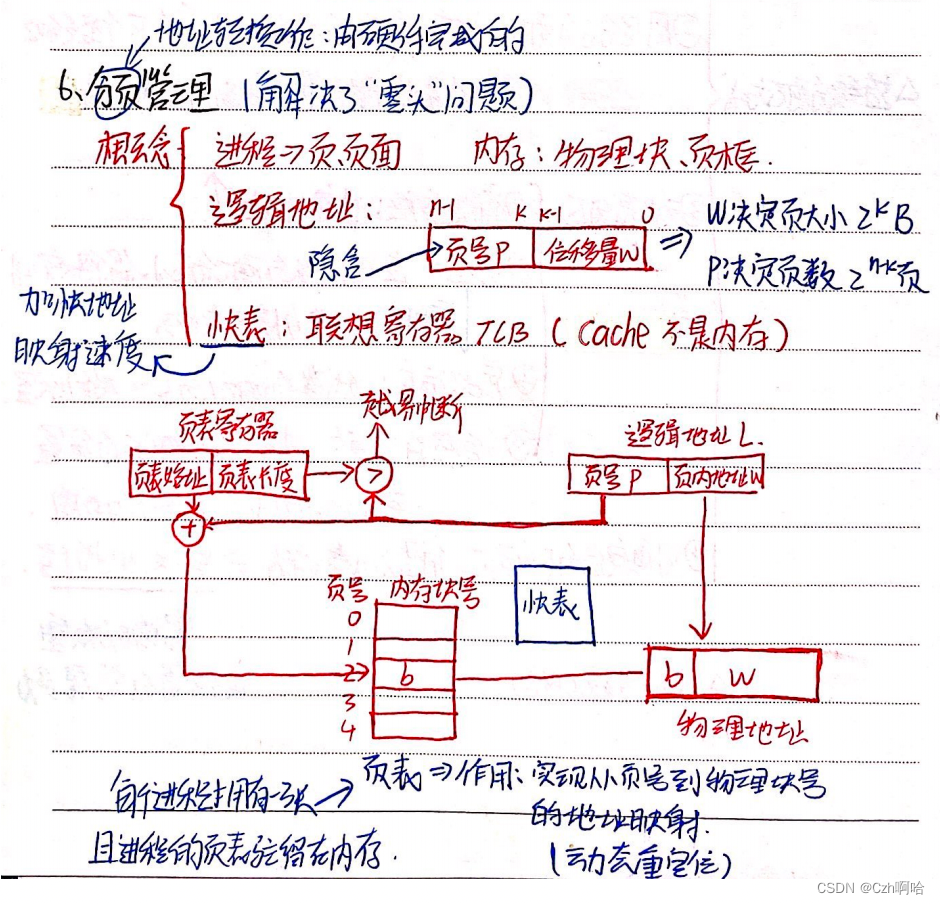 地址转换工作：由硬件完成的
6、分页管理（解决了“零头”问题）
概念
进程→页、页面 内存：物理块、页框.
逻辑地址：
n-1 k k-1 0
页号P 位移量W
隐含
⇒ W决定页大小 2^k B
P决定页数 2^(n-k)页
加快地址
映射速度
快表：联想寄存器 TLB（Cache 不是内存）
越界中断
页表寄存器
页表始址 页表长度
>
+
逻辑地址L.
页号P 页内地址W
页号 内存块号
0
1
2 b
3
4
快表
b W
物理地址
每个进程拥有一张
页表⇒作用：实现从页号到物理块号
的地址映射.
（动态重定位）
且进程的页表驻留在内存.
CSDN @Czh啊哈